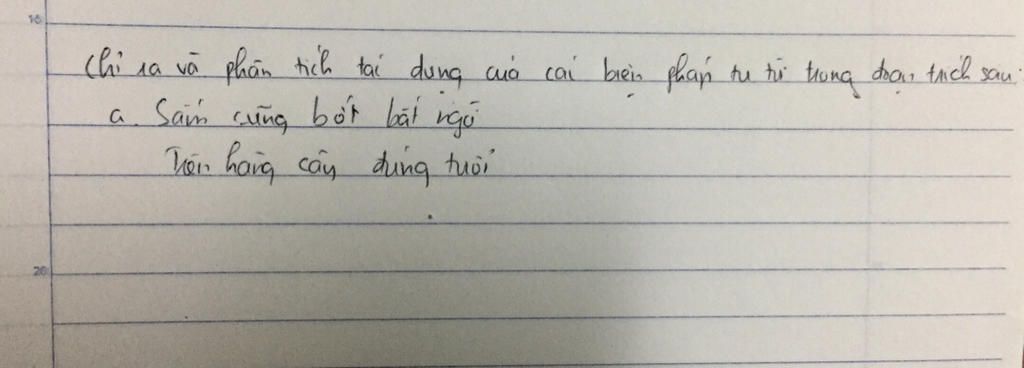 16
Chỉ ra và phân tích tác dụng của cái biện pháp tu từ trong đoạn trích sau:
a. Sấm cũng bớt bất ngờ
Trên hàng cây đứng tuổi
20